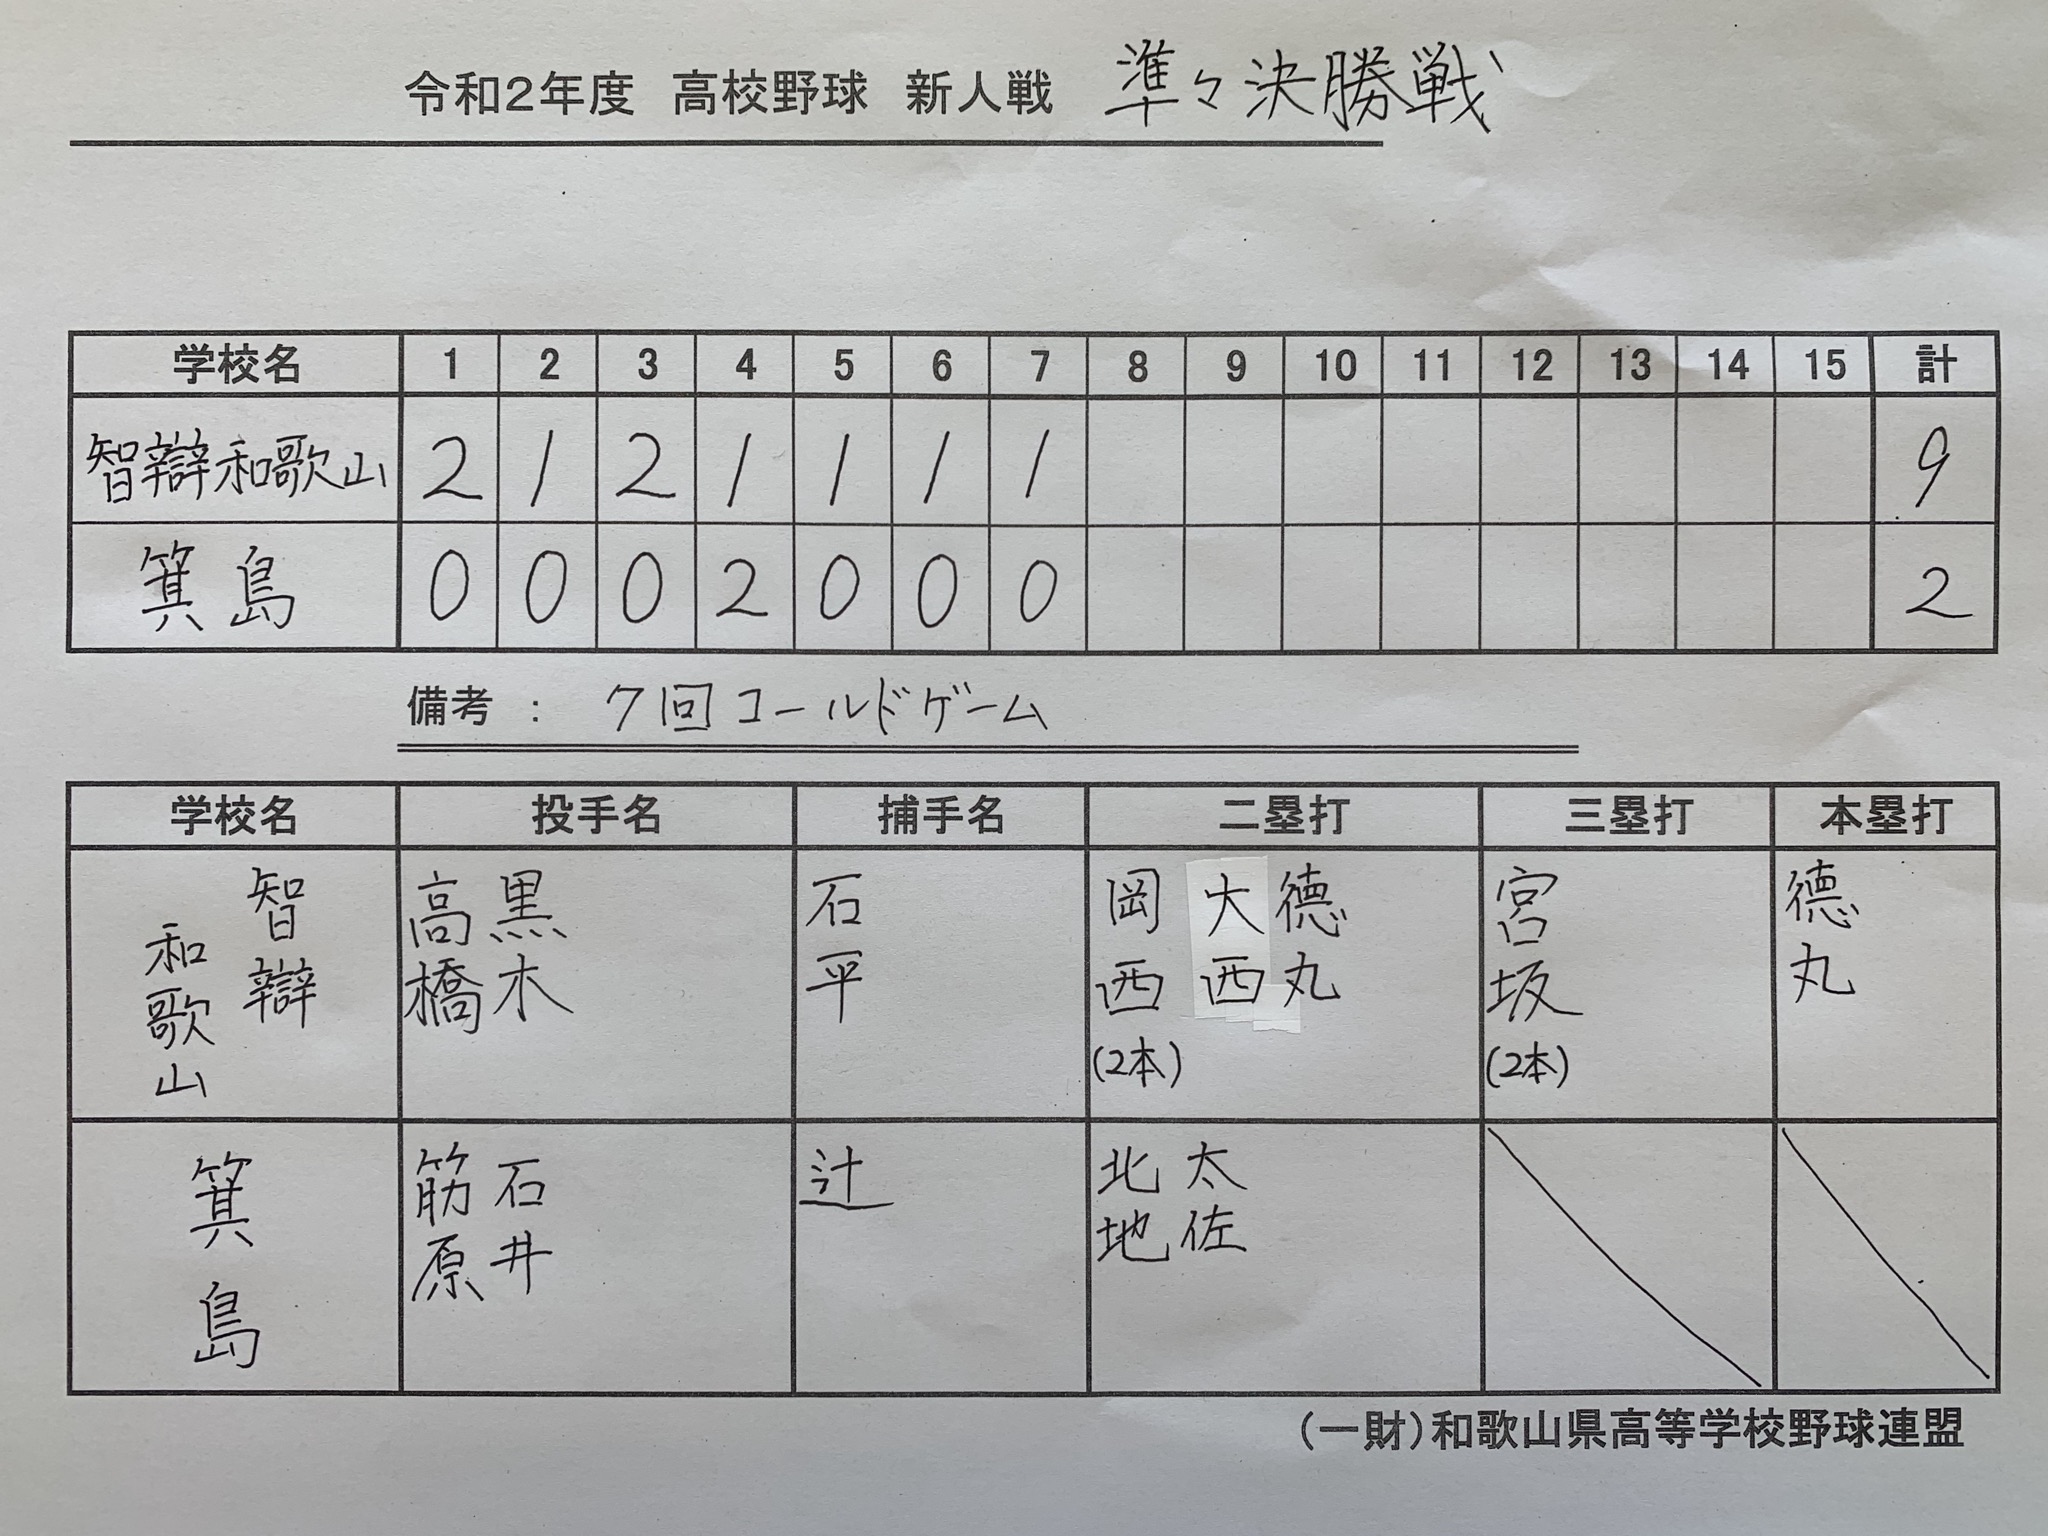 令和2年度 高校野球 新人戦 準々決勝戦
学校名 1 2 3 4 5 6 7 8 9 10 11 12 13 14 15 計
智辯和歌山 2 1 2 1 1 1 1 9
箕島 0 0 0 2 0 0 0 2
備考 : 7回コールドゲーム
学校名 投手名 捕手名 二塁打 三塁打 本塁打
智辯和歌山 高橋 黒木 石平 岡西(2本) 大西 徳丸 宮坂(2本) 徳丸
箕島 筋原 石井 辻 北地 太佐
(一財)和歌山県高等学校野球連盟